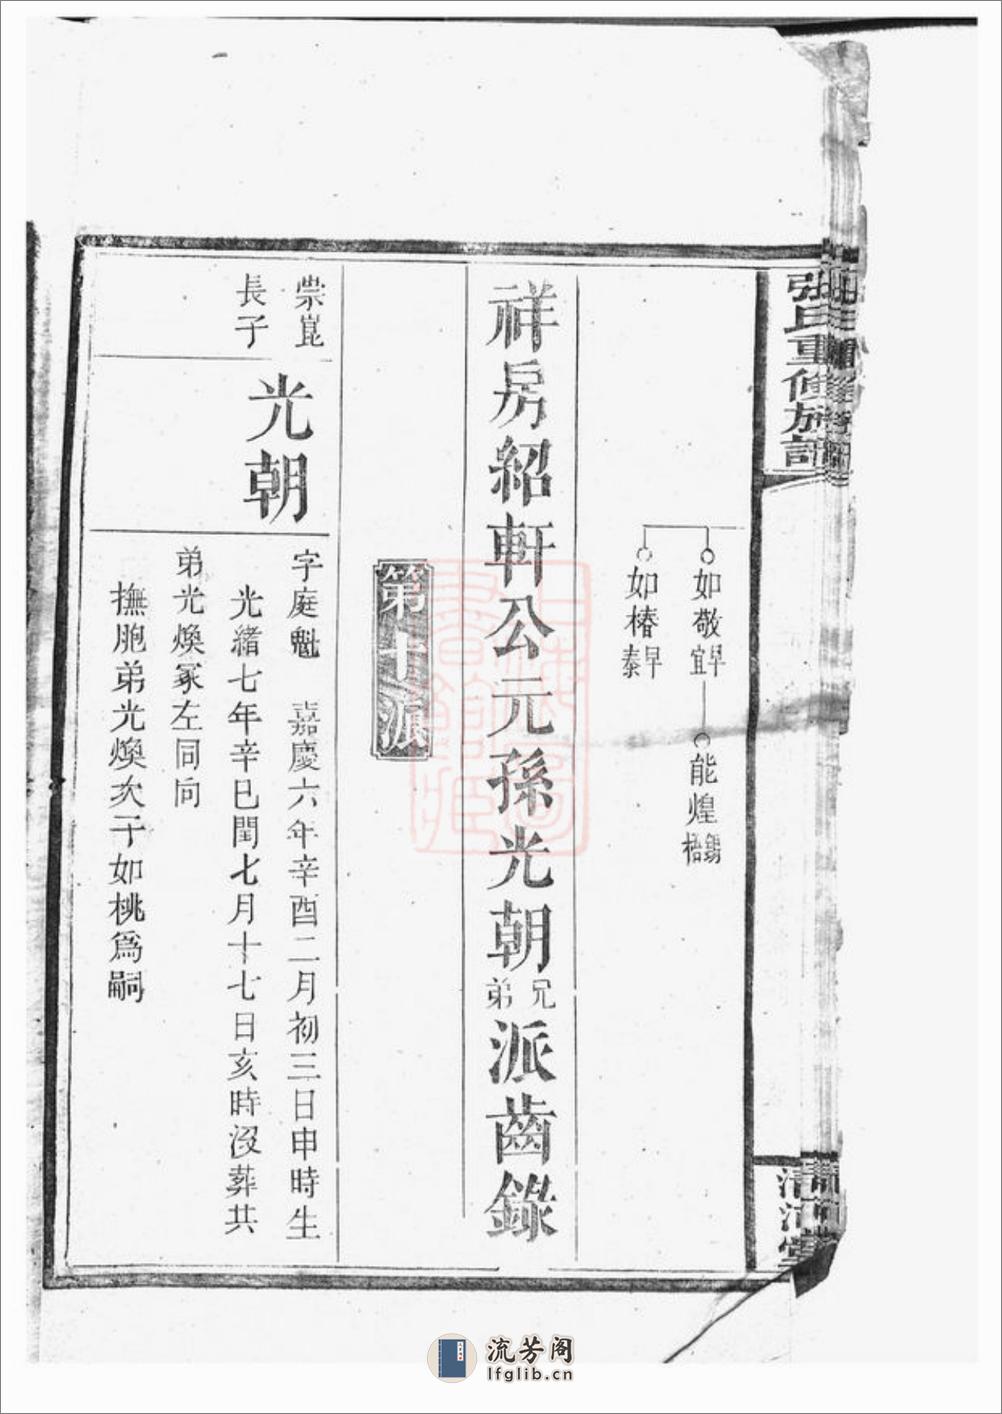 張氏重修族譜
清河堂
如敬 早宜
能煌
如椿 早泰
祥房紹軒公元孫光朝兄弟派齒錄
第十派
崇崑
長子
光朝
字庭魁 嘉慶六年辛酉二月初三日申時生
光緒七年辛巳閏七月十七日亥時沒葬共
弟光煥冢左同向
撫胞弟光煥次子如桃為嗣
流芳阁
lfglib.cn